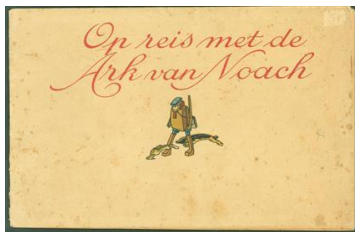 Op reis met de
Ark van Noach